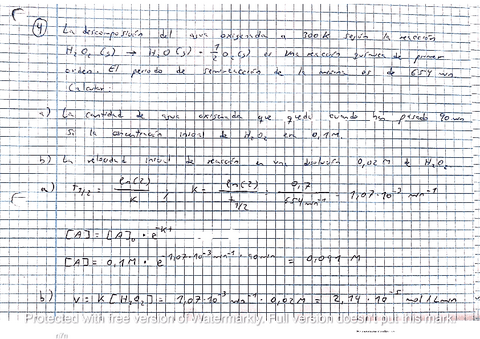 ④ La descomposición del agua oxigenada a 300K según la reacción
H₂O₂ (g) → H₂O (g) + 1/2 O₂ (g) es una reacción química de primer
orden. El periodo de semirreacción de la misma es de 654 min.
Calcular:
a) La cantidad de agua oxigenada que queda cuando han pasado 90 min
si la concentración inicial de H₂O₂ era 0,1M.
b) La velocidad inicial de reacción en una disolución 0,02 M de H₂O₂.
a) t₁/₂ = ln(2)/K ; K = ln(2)/t₁/₂ = 0,7/654 min⁻¹ = 1,07·10⁻³ min⁻¹
[A] = [A]₀ · e^-Kt
[A] = 0,1M · e^-1,07·10⁻³ min⁻¹ · 90min = 0,091 M
b) v = K [H₂O₂] = 1,07·10⁻³ min⁻¹ · 0,02M = 2,14 · 10⁻⁵ mol/L·min
Protected with free version of Watermarkly. Full version doesn't put this mark.